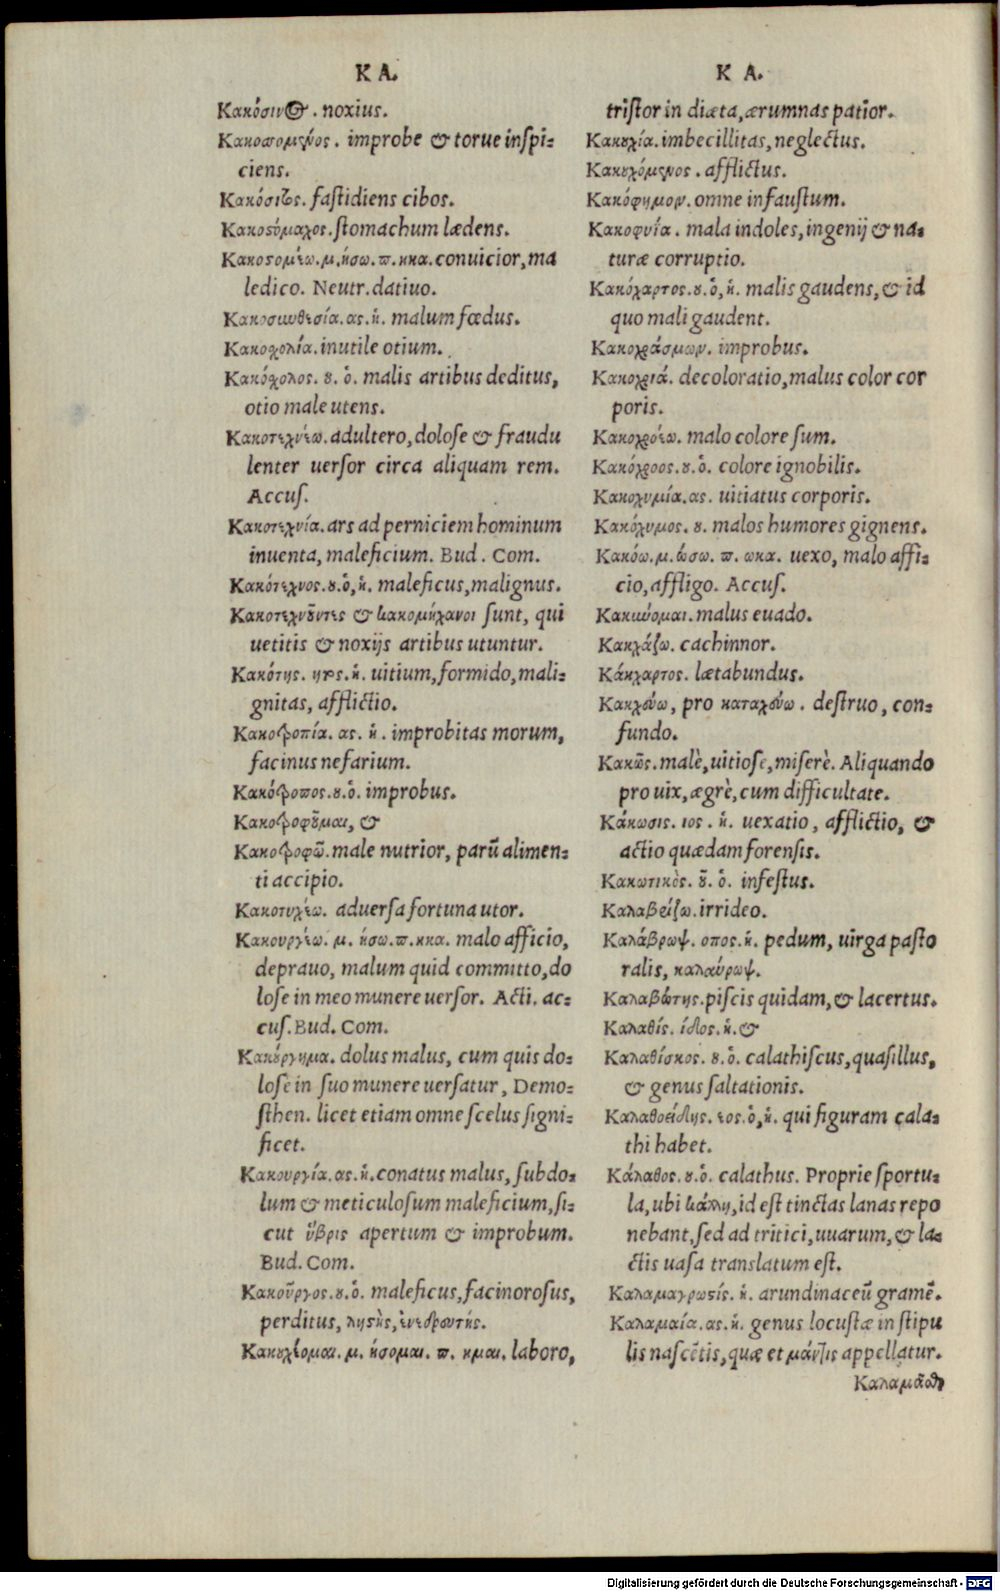 K A.
Κακόσινος. noxius.
Κακοσσομενος. improbe & torue inspi=
ciens.
Κακόσιτος. fastidiens cibos.
Κακοστόμαχος. stomachum lædens.
Κακοστομέω. μ. ήσω. π. ηκα. conuicior, ma
ledico. Neutr. datiuo.
Κακοσυνθεσία. ας. ἡ. malum fœdus.
Κακοσχολία. inutile otium.
Κακόσχολος. ου. ὁ. malis artibus deditus,
otio male utens.
Κακοτεχνέω. adultero, dolose & fraudu
lenter uersor circa aliquam rem.
Accus.
Κακοτεχνία. ars ad perniciem hominum
inuenta, maleficium. Bud. Com.
Κακότεχνος. ου. ὁ, ἡ. maleficus, malignus.
Κακοτεχνοῦντες & κακομήχανοι sunt, qui
uetitis & noxijs artibus utuntur.
Κακότης. ητος. ἡ. uitium, formido, mali=
gnitas, afflictio.
Κακοτροπία. ας. ἡ. improbitas morum,
facinus nefarium.
Κακότροπος. ου. ὁ. improbus.
Κακοτροφοῦμαι, &
Κακοτροφῶ. male nutrior, parũ alimen=
ti accipio.
Κακοτυχέω. aduersa fortuna utor.
Κακουργέω. μ. ήσω. π. ηκα. malo afficio,
deprauo, malum quid committo, do
lose in meo munere uersor. Acti. ac=
cus. Bud. Com.
Κακούργημα. dolus malus, cum quis do=
lose in suo munere uersatur, Demo=
sthen. licet etiam omne scelus signi=
ficet.
Κακουργία. ας. ἡ. conatus malus, subdo=
lum & meticulosum maleficium, si=
cut ὕβρις apertum & improbum.
Bud. Com.
Κακοῦργος. ου. ὁ. maleficus, facinorosus,
perditus, ληστὴς, ἐνεδρευτής.
Κακουχέομαι. μ. ήσομαι. π. ημαι. laboro,
K A.
tristor in diæta, ærumnas patior.
Κακουχία. imbecillitas, neglectus.
Κακουχόμενος. afflictus.
Κακόφημον. omne infaustum.
Κακοφυΐα. mala indoles, ingenij & na=
turæ corruptio.
Κακόχαρτος. ου. ὁ, ἡ. malis gaudens, & id
quo mali gaudent.
Κακοχράσμων. improbus.
Κακοχριά. decoloratio, malus color cor
poris.
Κακοχρόεω. malo colore sum.
Κακόχροος. ου. ὁ. colore ignobilis.
Κακοχυμία. ας. uitiatus corporis.
Κακόχυμος. ου. malos humores gignens.
Κακόω. μ. ώσω. π. ωκα. uexo, malo affi=
cio, affligo. Accus.
Κακύνομαι. malus euado.
Κακχάζω. cachinnor.
Κάκχαρτος. lætabundus.
Κακχεύω, pro καταχεύω. destruo, con=
fundo.
Κακῶς. malè, uitiose, miserè. Aliquando
pro uix, ægrè, cum difficultate.
Κάκωσις. ιος. ἡ. uexatio, afflictio, &
actio quædam forensis.
Κακωτικὸς. οῦ. ὁ. infestus.
Καλαβρίζω. irrideo.
Καλάβρωψ. οπος. ἡ. pedum, uirga pasto
ralis, καλαύρωψ.
Καλαβώτης. piscis quidam, & lacertus.
Καλαθίς. ίδος. ἡ. &
Καλαθίσκος. ου. ὁ. calathiscus, quasillus,
& genus saltationis.
Καλαθοειδης. εος. ὁ, ἡ. qui figuram cala=
thi habet.
Κάλαθος. ου. ὁ. calathus. Proprie sportu=
la, ubi κάλλη, id est tinctas lanas repo
nebant, sed ad tritici, uuarum, & la=
ctis uasa translatum est.
Καλαμαγρωστίς. ἡ. arundinaceũ gramẽ.
Καλαμαία. ας. ἡ. genus locustæ in stipu
lis nascẽtis, quæ et μάντις appellatur.
Digitalisierung gefördert durch die Deutsche Forschungsgemeinschaft - DFG